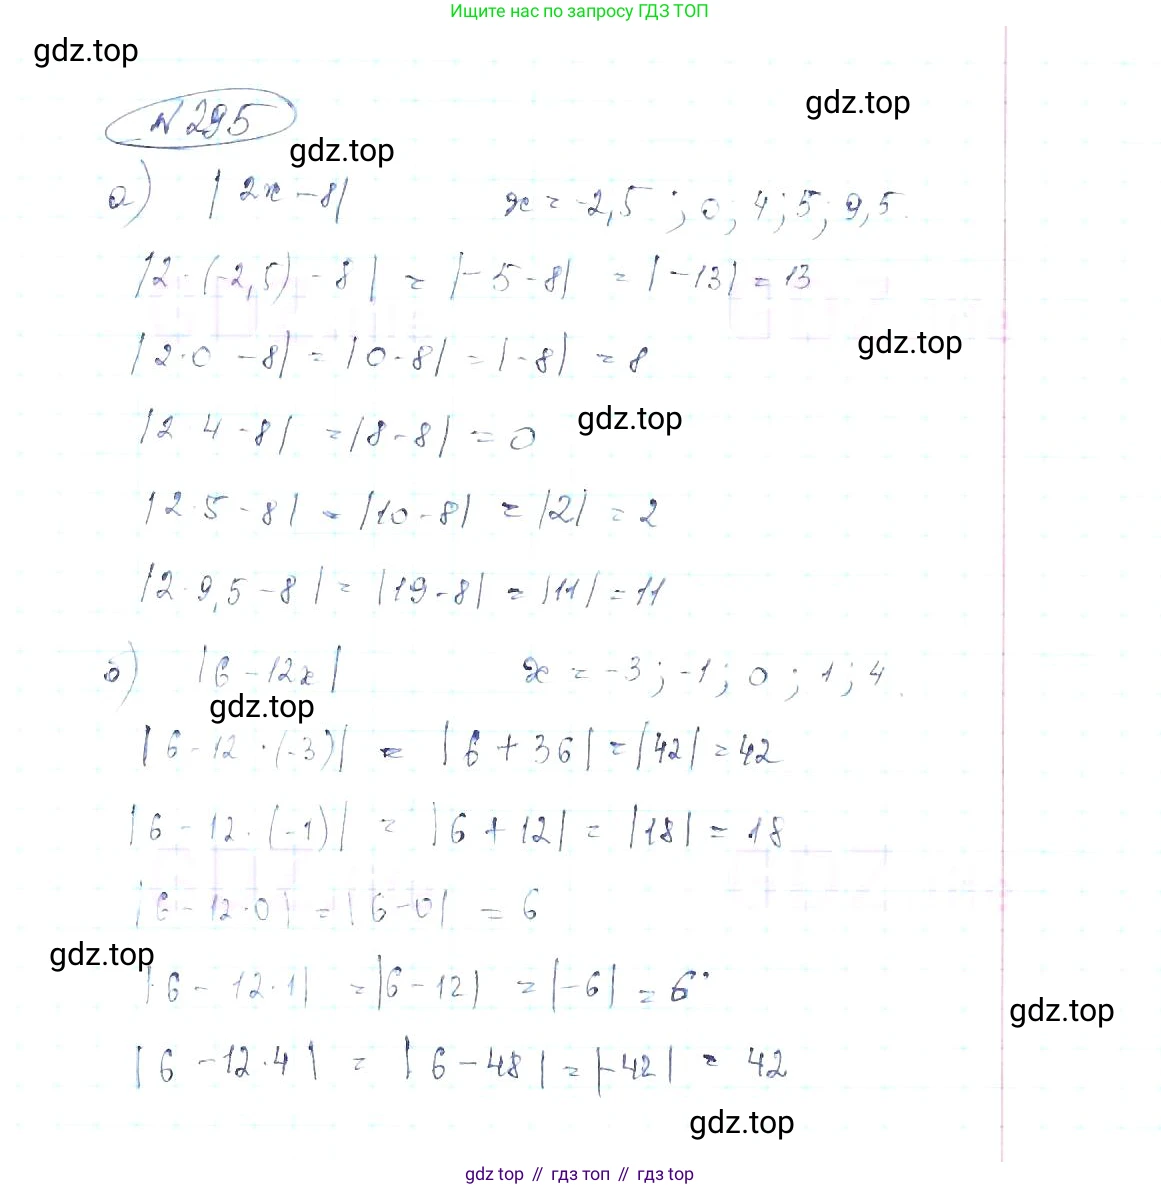 Ищите нас по запросу ГДЗ ТОП
gdz.top
gdz.top
№ 295
gdz.top
а) |2x - 8| x = -2,5; 0; 4; 5; 9,5.
|2 · (-2,5) - 8| = |-5 - 8| = |-13| = 13
gdz.top
|2 · 0 - 8| = |0 - 8| = |-8| = 8
gdz.top
|2 · 4 - 8| = |8 - 8| = 0
|2 · 5 - 8| = |10 - 8| = |2| = 2
|2 · 9,5 - 8| = |19 - 8| = |11| = 11
б) |6 - 12x| x = -3; -1; 0; 1; 4.
gdz.top
|6 - 12 · (-3)| = |6 + 36| = |42| = 42
|6 - 12 · (-1)| = |6 + 12| = |18| = 18
|6 - 12 · 0| = |6 - 0| = 6
gdz.top
|6 - 12 · 1| = |6 - 12| = |-6| = 6
gdz.top
|6 - 12 · 4| = |6 - 48| = |-42| = 42
gdz.top
gdz top // гдз топ // гдз top